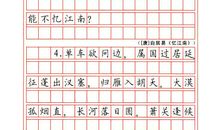 能不忆江南?
(唐)白居易《忆江南》
4.单车欲问边。属国过居延
征蓬出汉塞。归雁入胡天。大漠
孤烟直。长河落日圆。萧关逢候